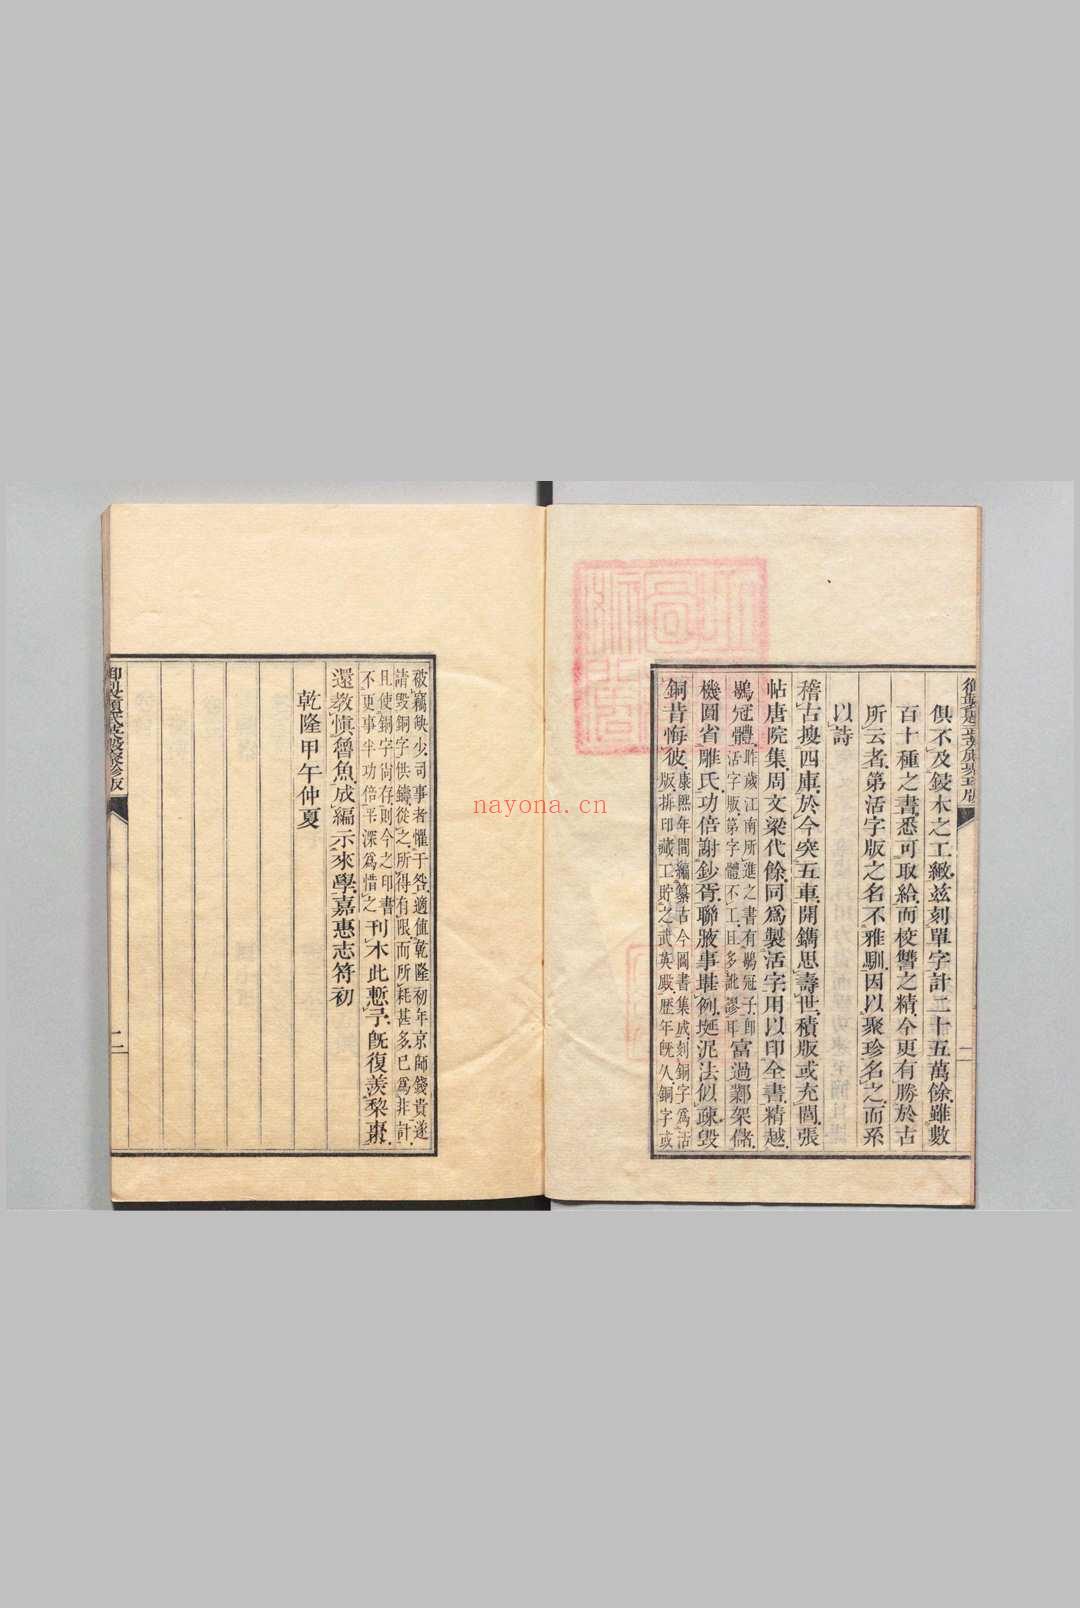 俱不及鋟木之工緻茲刻單字計二十五萬餘雖數
百十種之書悉可取給而校讐之精今更有勝於古
所云者第活字版之名不雅馴因以聚珍名之而系
以詩
稽古搜四庫於今突五車開鐫思壽世積版或充閭張
帖唐院集周文梁代餘同爲製活字用以印全書精越
鶡冠體昨歲江南所進之書有鶡冠子卽活字版第字體不工且多訛謬耳富過鄴架儲
機圓省雕氏功倍謝鈔胥聯腋事堪例埏泥法似疎毀
銅昔悔彼康熙年間編纂古今圖書集成刻銅字爲活版排印藏工貯之武英殿歷年旣久銅字或
被竊缺少司事者懼干咎適值乾隆初年京師錢貴遂請毀銅字供鑄從之所得有限而所耗甚多已爲非計
且使銅字尙存則今之印書不更事半功倍乎深爲惜之刊木此慙予旣復羨梨棗
還教愼魯魚成編示來學嘉惠志符初
乾隆甲午仲夏
二
nayona.cn